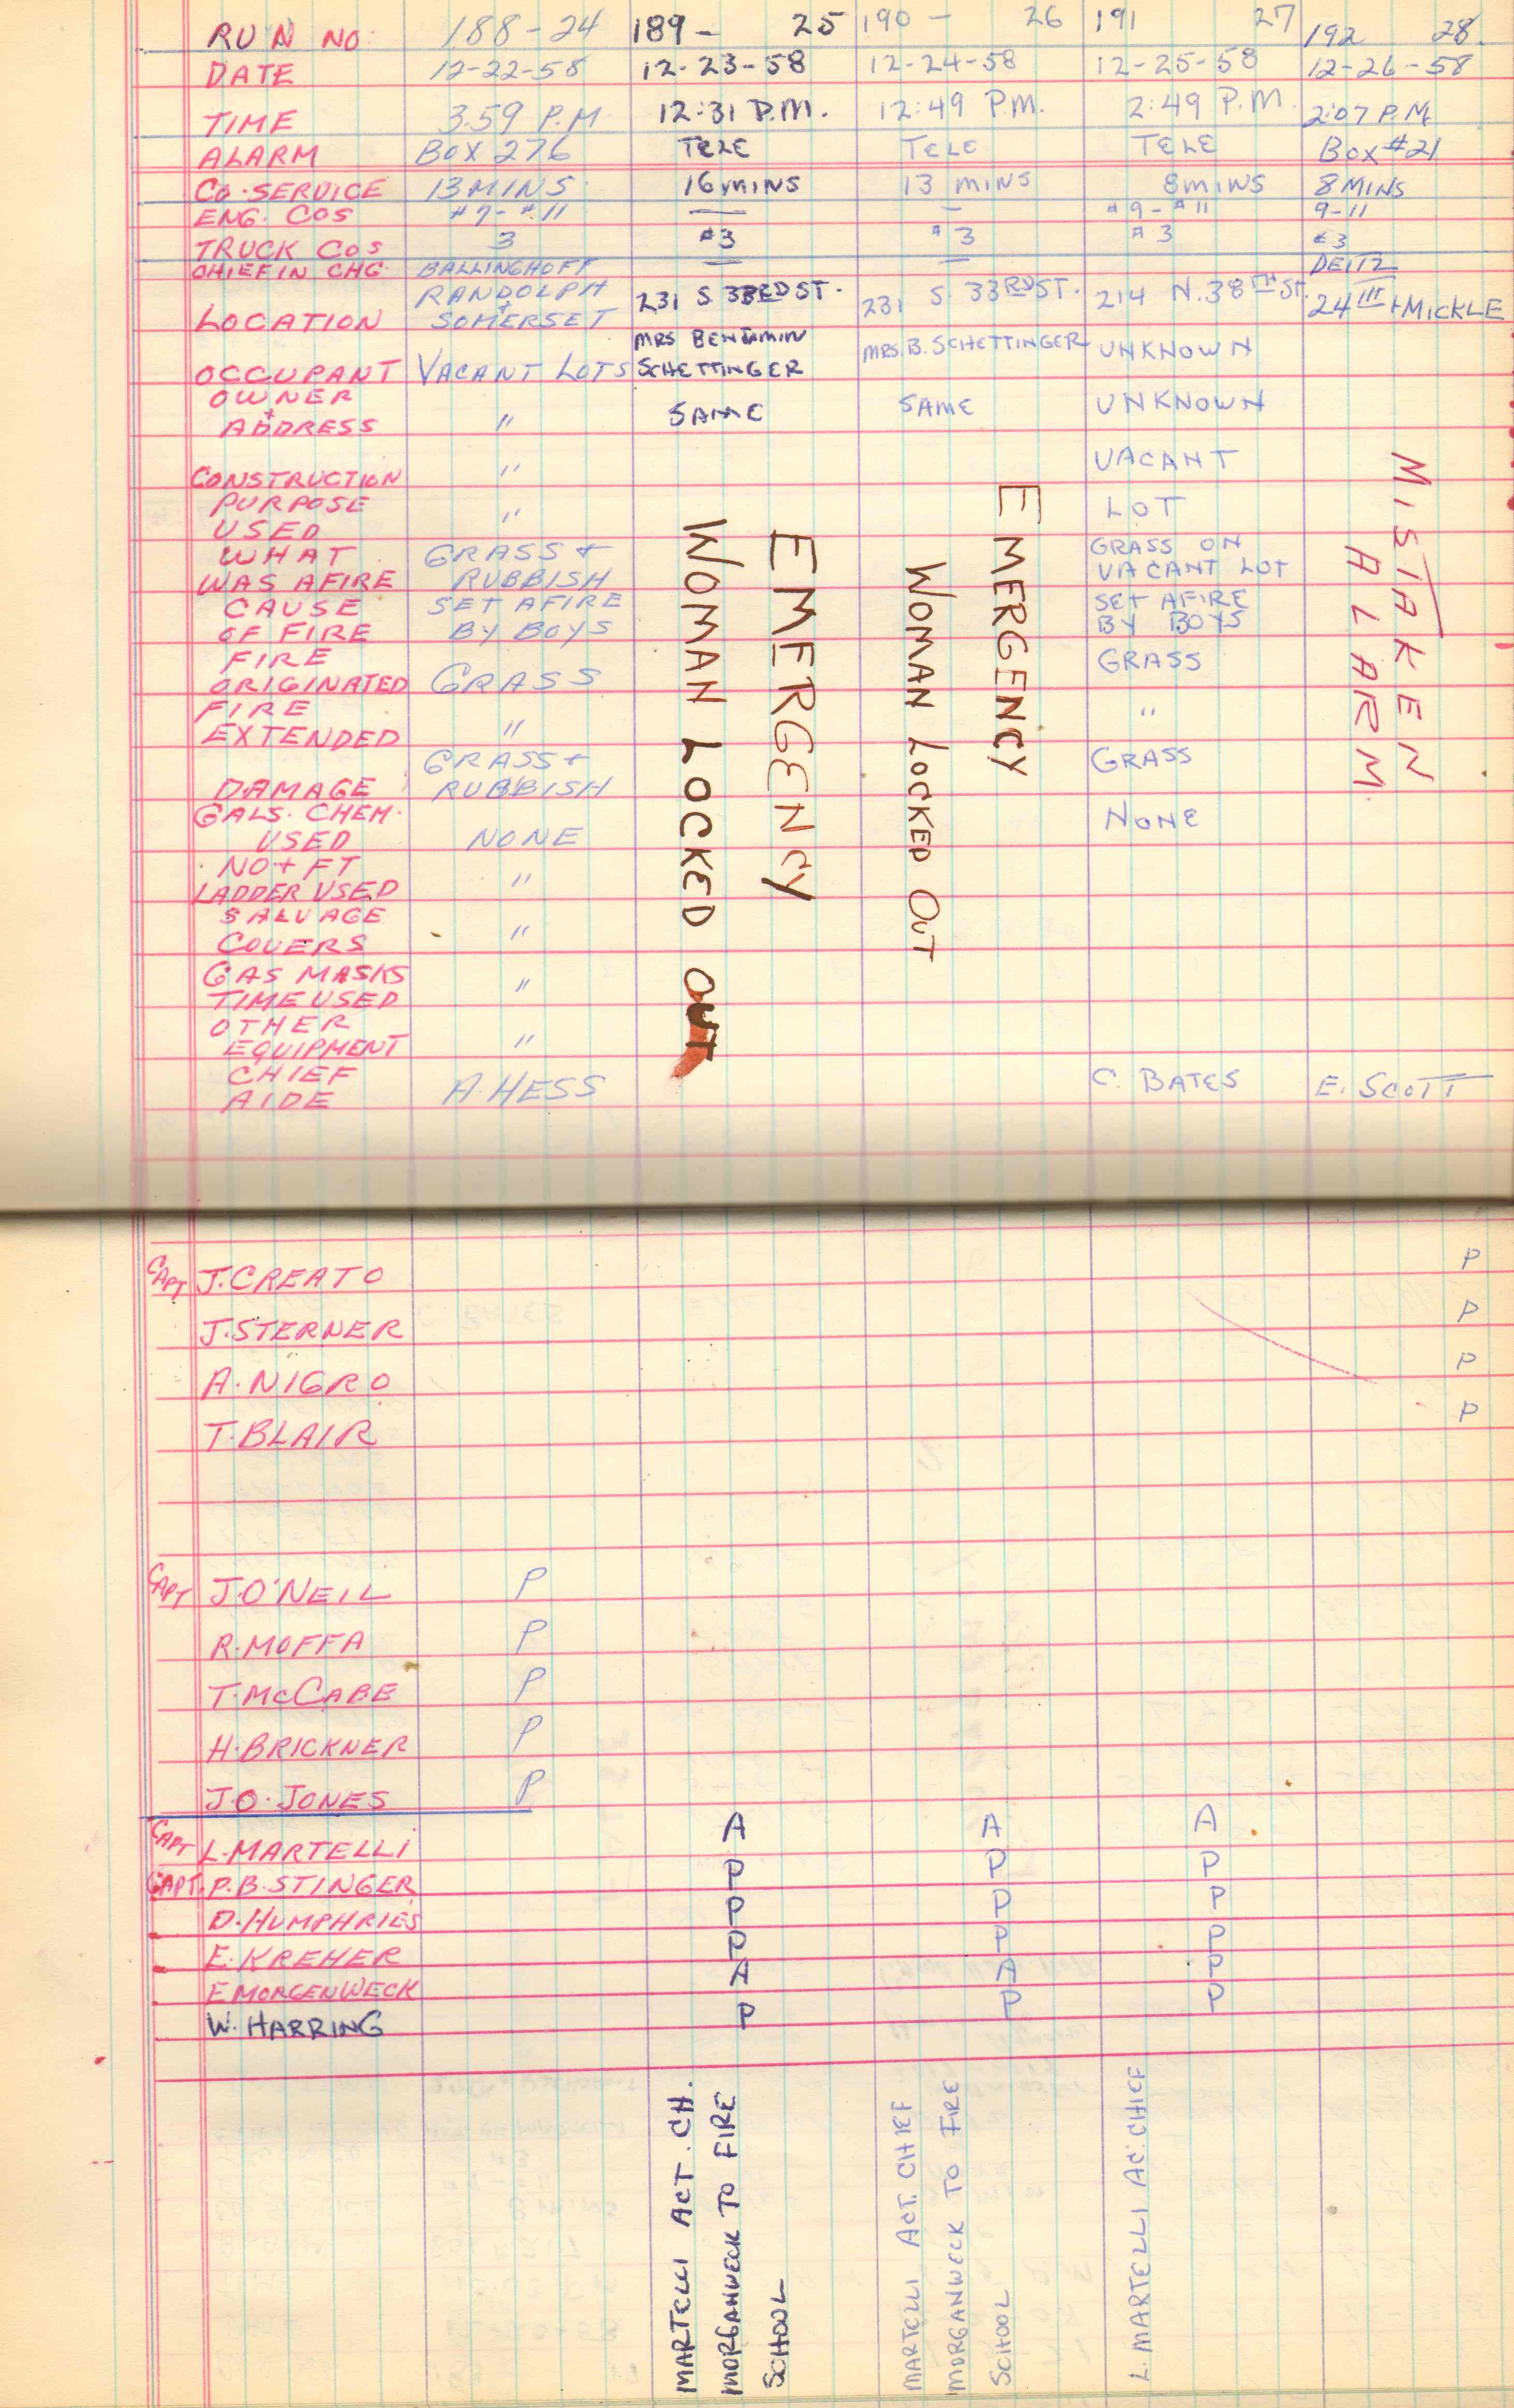 RUN NO: 188-24 189- 25 190- 26 191 27 192 28
DATE 12-22-58 12-23-58 12-24-58 12-25-58 12-26-58
TIME 3:59 P.M 12:31 P.M. 12:49 P.M. 2:49 P.M. 2:07 P.M.
ALARM BOX 276 TELE TELE TELE BOX #21
CO. SERVICE 13 MINS 16 MINS 13 MINS 8 MINS 8 MINS
ENG. COS #7-#11 — — #9-#11 9-11
TRUCK COS 3 #3 #3 #3 #3
CHIEF IN CHG BALLINGHOFF — — DEITZ
LOCATION RANDOLPH + SOMERSET 231 S. 33RD ST. 231 S. 33RD ST. 214 N. 38TH ST. 24TH + MICKLE
OCCUPANT VACANT LOTS MRS BENJAMIN SCHETTINGER MRS. B. SCHETTINGER UNKNOWN
OWNER + ADDRESS " SAME SAME UNKNOWN
CONSTRUCTION " VACANT
PURPOSE USED " LOT
WHAT WAS AFIRE GRASS + RUBBISH GRASS ON VACANT LOT
CAUSE OF FIRE SET AFIRE BY BOYS SET AFIRE BY BOYS
FIRE ORIGINATED GRASS GRASS
FIRE EXTENDED " "
DAMAGE GRASS + RUBBISH GRASS
GALS. CHEM. USED NONE NONE
NO + FT LADDER USED "
SALVAGE COVERS "
GAS MASKS TIME USED "
OTHER EQUIPMENT "
CHIEF AIDE A. HESS C. BATES E. SCOTT
EMERGENCY
WOMAN LOCKED OUT
EMERGENCY
WOMAN LOCKED OUT
MISTAKEN
ALARM
CAPT J. CREATO P
J. STERNER P
A. NIGRO P
T. BLAIR P
CAPT J. O'NEIL P
R. MOFFA P
T. McCABE P
H. BRICKNER P
J. O. JONES P
CAPT L. MARTELLI A A A
CAPT. P. B. STINGER P P P
D. HUMPHRIES P P P
E. KREHER P P P
F MORGENWECK A A P
W. HARRING P P P
MARTELLI ACT. CH.
MORGANWECK TO FIRE
SCHOOL
MARTELLI ACT. CHIEF
MORGANWECK TO FIRE
SCHOOL
L. MARTELLI AC. CHIEF